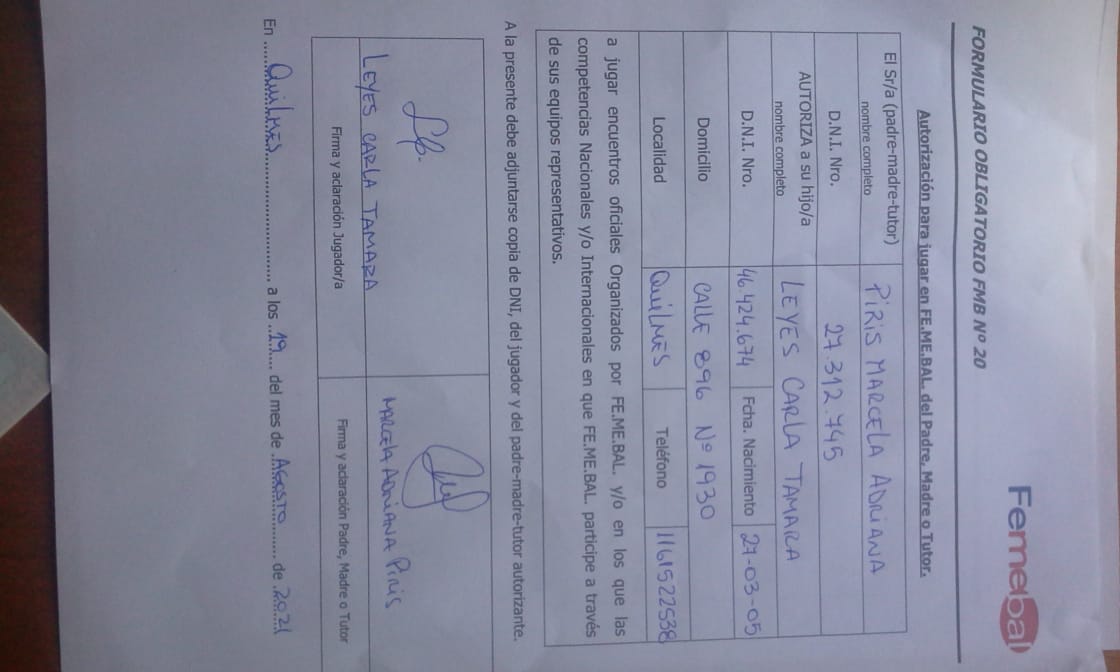 Femebal
FORMULARIO OBLIGATORIO FMB Nº 20
Autorización para jugar en FE.ME.BAL. del Padre, Madre o Tutor.
El Sr/a (padre-madre-tutor) nombre completo PIRIS MARCELA ADRIANA
D.N.I. Nro. 27.312.745
AUTORIZA a su hijo/a nombre completo LEYES CARLA TAMARA
D.N.I. Nro. 46.424.674 Fcha. Nacimiento 27-03-05
Domicilio CALLE 896 Nº 1930
Localidad QUILMES Teléfono 1161522538
a jugar encuentros oficiales Organizados por FE.ME.BAL. y/o en los que las
competencias Nacionales y/o Internacionales en que FE.ME.BAL. participe a través
de sus equipos representativos.
A la presente debe adjuntarse copia de DNI, del jugador y del padre-madre-tutor autorizante.
LEYES CARLA TAMARA MARCELA ADRIANA PIRIS
Firma y aclaración Jugador/a Firma y aclaración Padre, Madre o Tutor
En ...QUILMES... a los ...19... del mes de ...AGOSTO... de ...2021